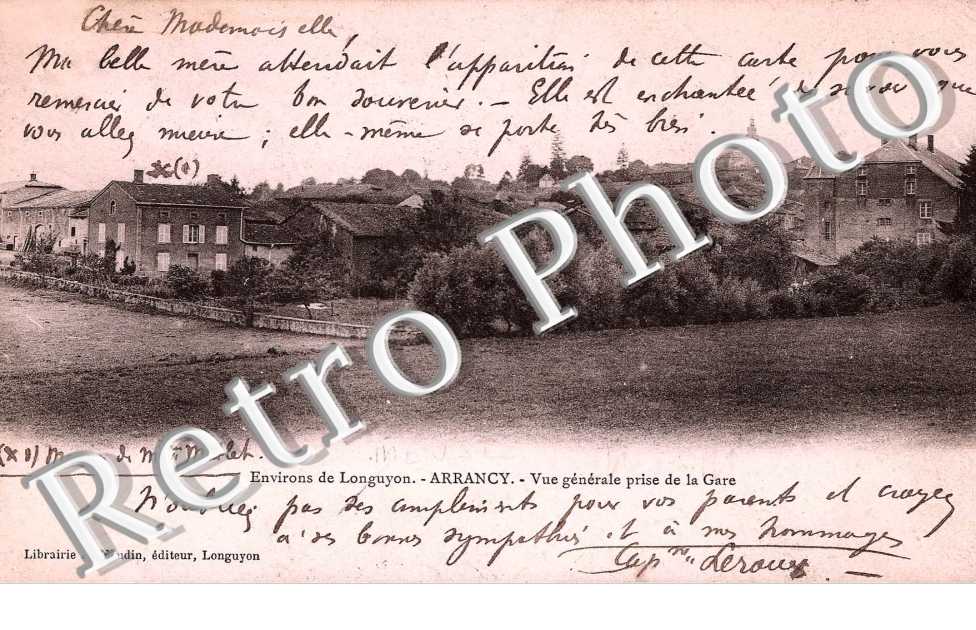 Chère Mademoiselle,
Ma belle mère attendait l'apparition de cette carte pour vous
remercier de votre bon souvenir. - Elle est enchantée de savoir que
vous allez mieux ; elle-même se porte très bien.
(1)
Retro Photo
(1) M de Mr
Environs de Longuyon. - ARRANCY. - Vue générale prise de la Gare
N'oubliez pas ses compliments pour vos parents et croyez
à ses bonnes sympathies et à mes hommages
Librairie éditeur, Longuyon
Capne Leroux